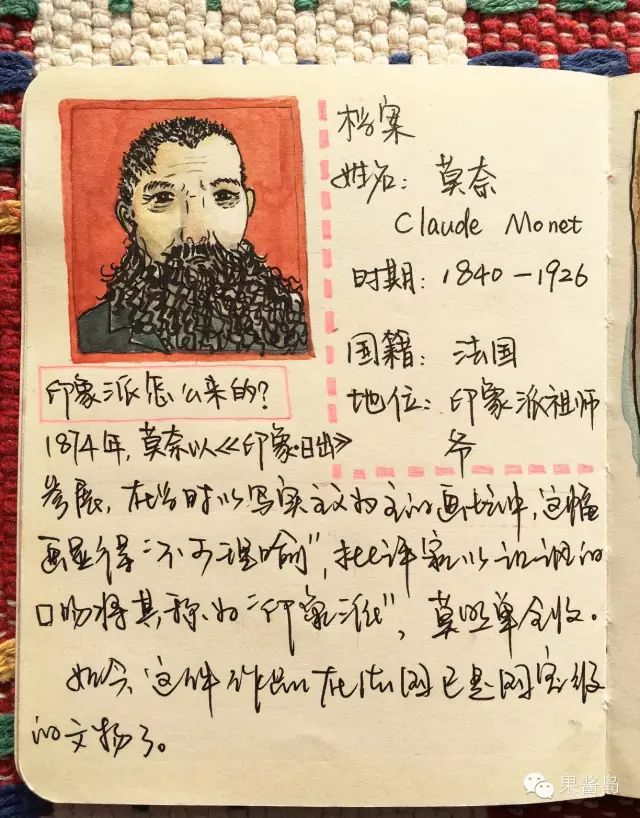 档案
姓名：莫奈
Claude Monet
时期：1840－1926
国籍：法国
地位：印象派祖师
爷
印象派怎么来的？
1874年，莫奈以《印象·日出》
参展，在当时以写实主义为主的画坛中，这幅
画显得“不可理喻”，批评家以讥讽的
口吻将其称为“印象派”，莫照单全收。
如今，这件作品在法国已是国宝级
的文物了。
果酱岛